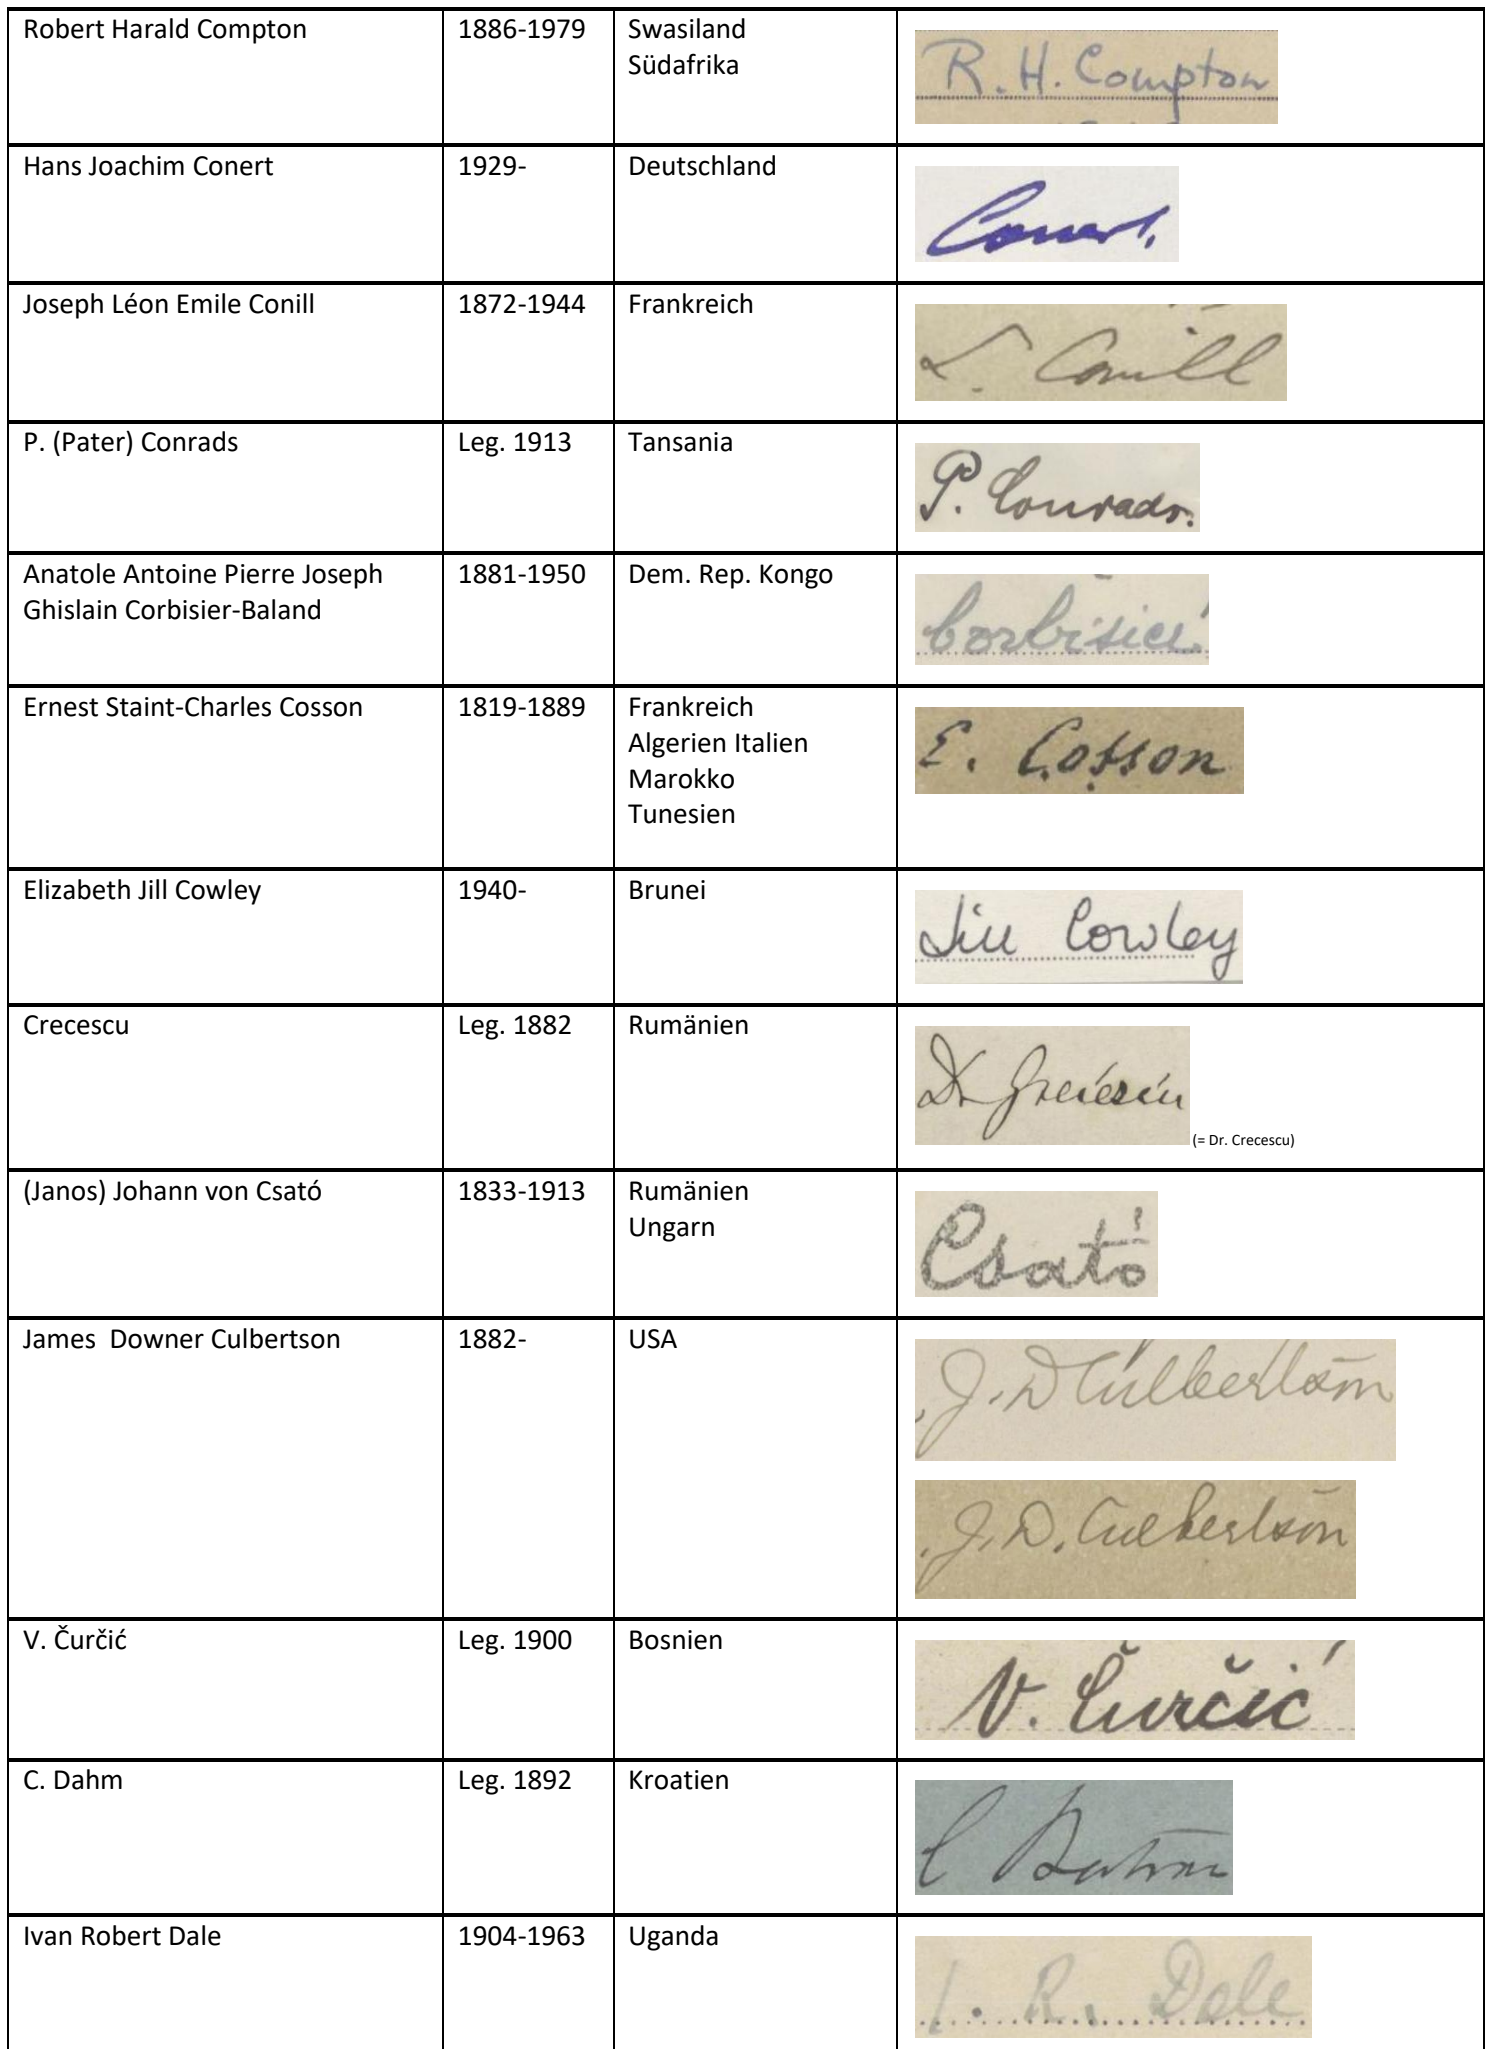 Robert Harald Compton 1886-1979 Swasiland
Südafrika
R. H. Compton
Hans Joachim Conert 1929- Deutschland
Conert.
Joseph Léon Emile Conill 1872-1944 Frankreich
L. Conill
P. (Pater) Conrads Leg. 1913 Tansania
P. Conrads.
Anatole Antoine Pierre Joseph 1881-1950 Dem. Rep. Kongo
Ghislain Corbisier-Baland
Corbisier
Ernest Staint-Charles Cosson 1819-1889 Frankreich
Algerien Italien
Marokko
Tunesien
E. Cosson
Elizabeth Jill Cowley 1940- Brunei
Jill Cowley
Crecescu Leg. 1882 Rumänien
Dr
(= Dr. Crecescu)
(Janos) Johann von Csató 1833-1913 Rumänien
Ungarn
Csató
James Downer Culbertson 1882- USA
J. D Culbertson
J. D. Culbertson
V. Čurčić Leg. 1900 Bosnien
V. Čurčić
C. Dahm Leg. 1892 Kroatien
C Dahm
Ivan Robert Dale 1904-1963 Uganda
I. R. Dale